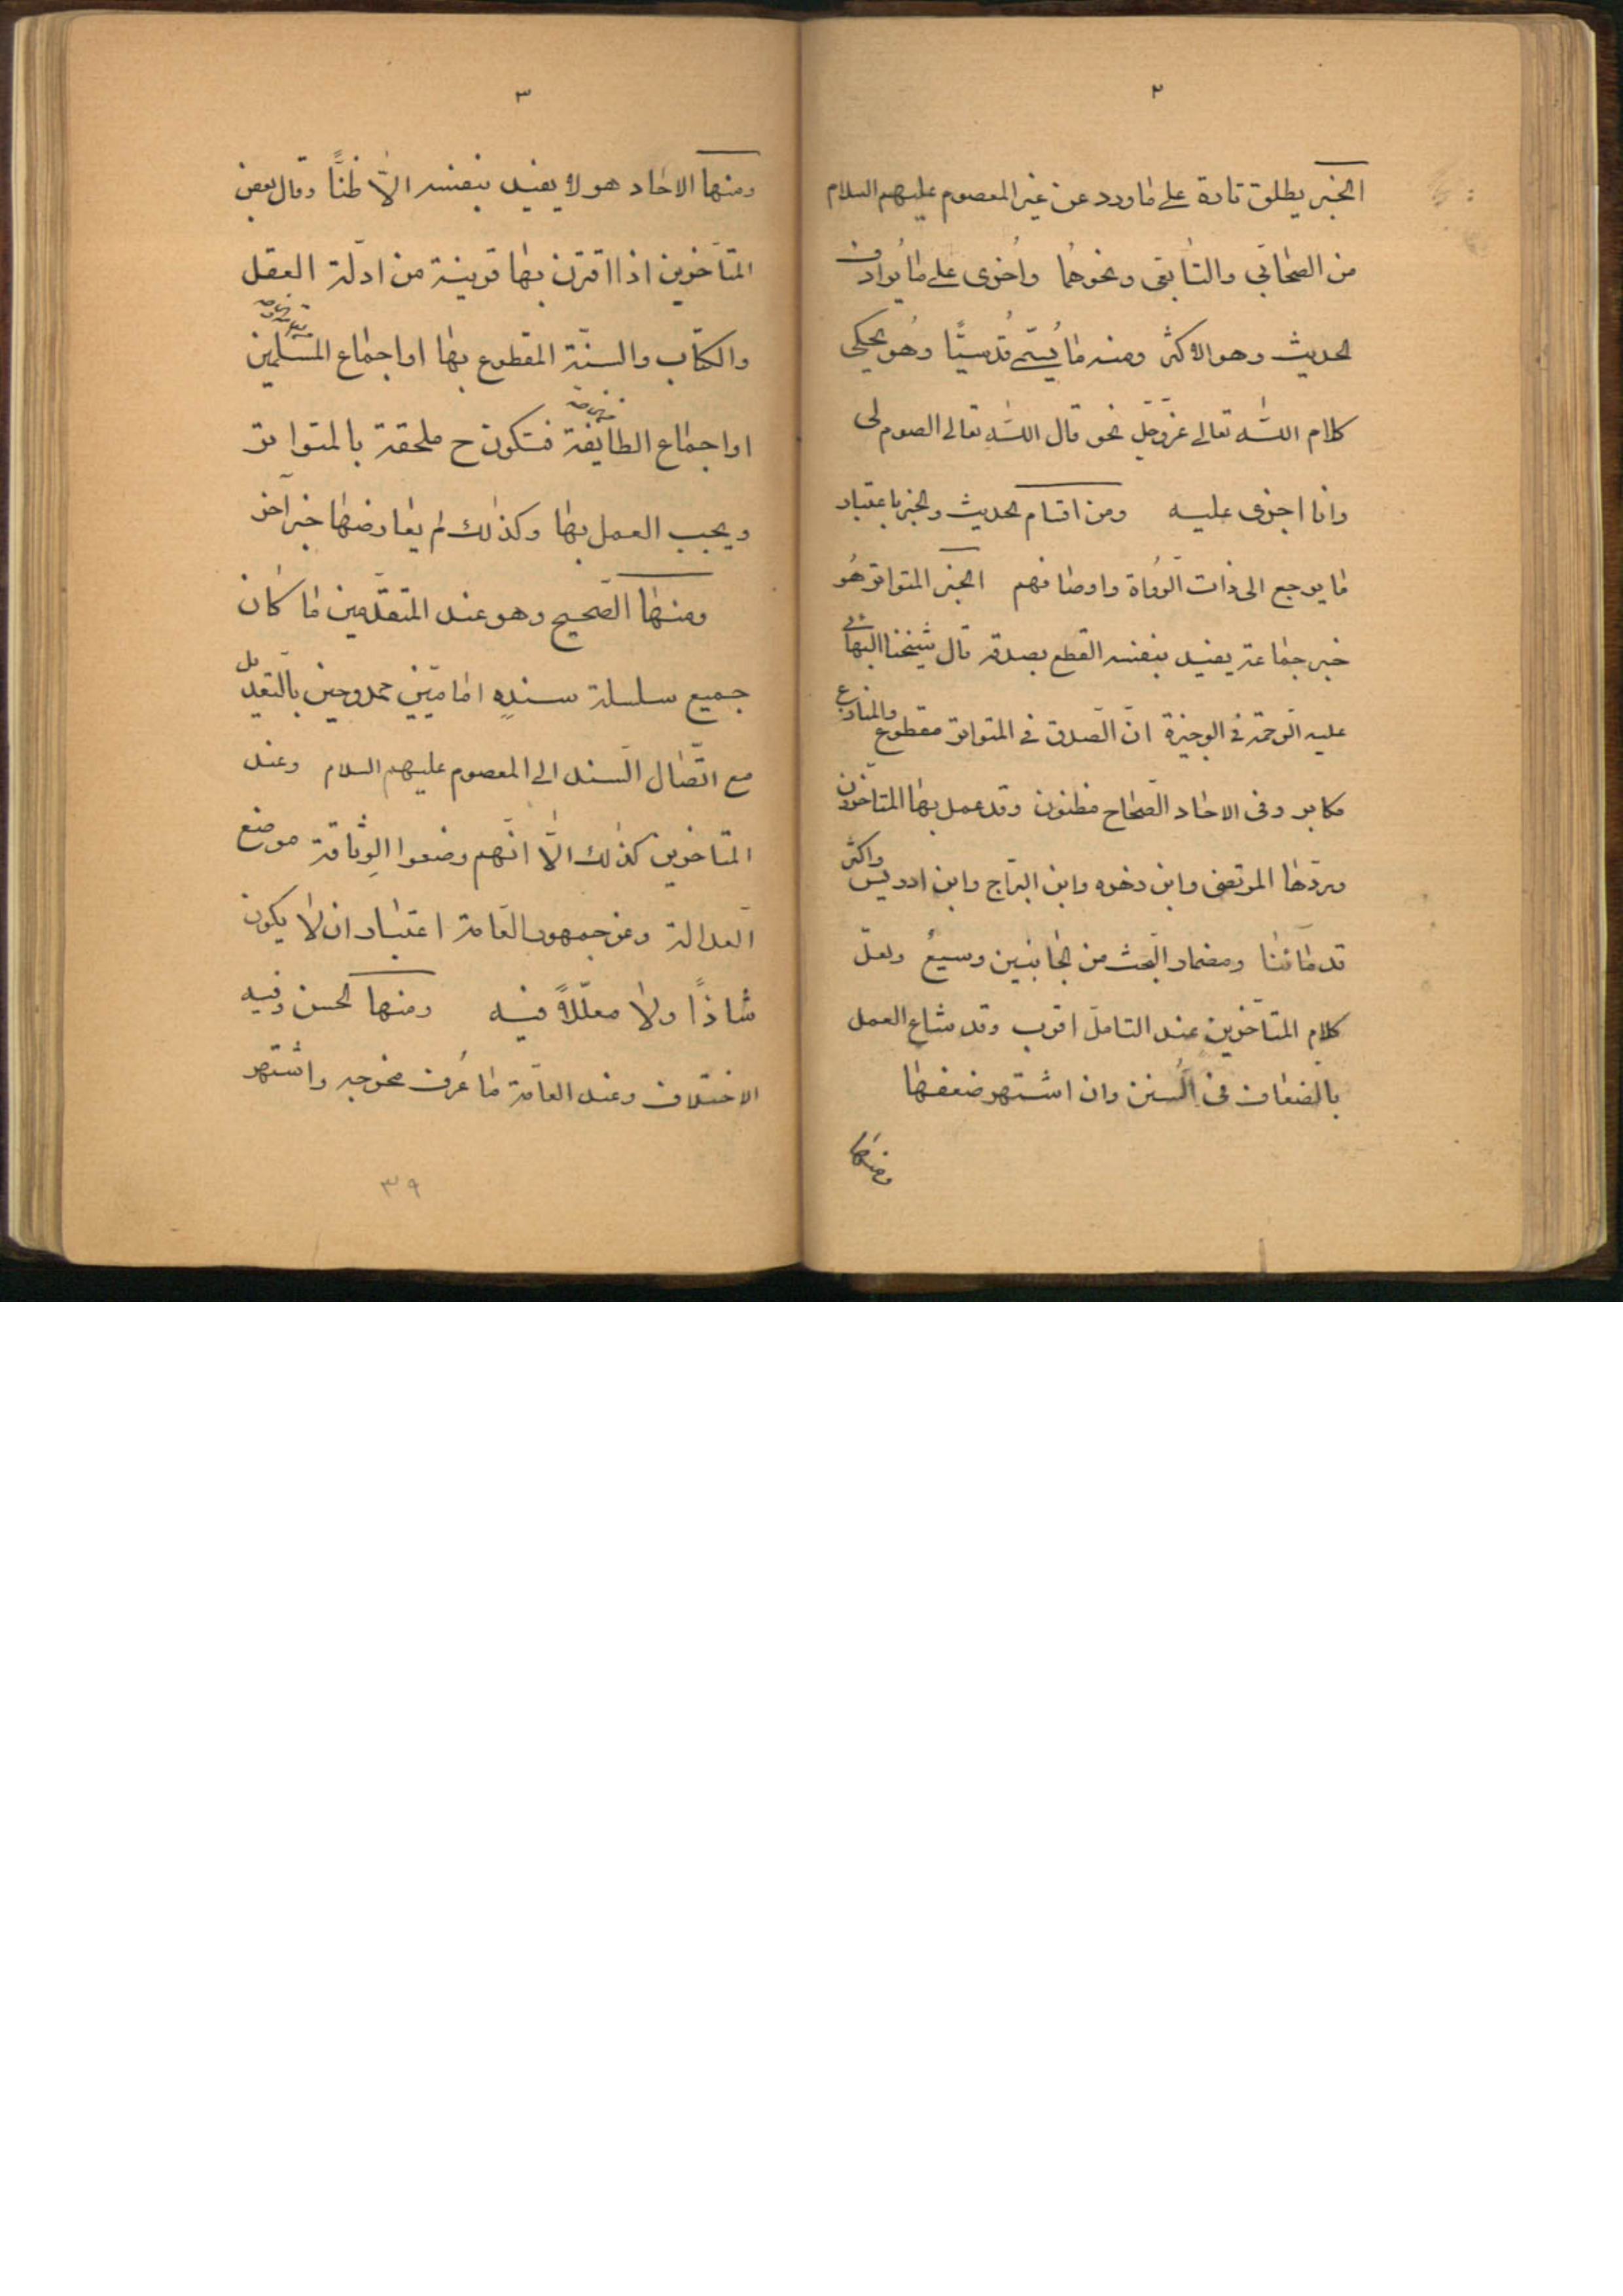 ٢
الخبر يطلق تارة على ما ورد عن غير المعصوم عليهم السلام
من الصّحابي والتّابعي ونحوهما وأخرى على ما يُرادف
الحديث وهو الاكثر ومنه ما يُسمّى قُدسيًّا وهُو يحكي
كلام اللّٰه تعالى عزّ وجلّ نحو قال اللّٰه تعالى الصوم لى
وانا اجزى عليه ومن اقسام الحديث والخبر باعتبار
ما يرجع الى ذات الرّواة واوصافهم الخبر المتواتر هُو
خبر جماعة يفيد بنفسه القطع بصدقه قال شيخنا البهائي
عليه الرّحمة في الوجيزة انّ الصّدق في المتواتر مقطوع والمنازع
مكابر وفى الاحاد الصّحاح مظنون وقد عمل بها المتاخّرون
وردّها المرتضى وابن زهره وابن البرّاج وابن ادريس واكثر
قدمائنا ومضمار البحث من الجانبين وسيعٌ ولعلّ
كلام المتاخّرين عند التامل اقرب وقد شاع العمل
بالضعاف فى السُّنن وان اشتهر ضعفها
ومنها
٣
ومنها الاحاد هو لا يفيد بنفسه الّا ظنًّا وقال بعض
المتاخّرين اذا اقترن بها قرينة من ادلّة العقل
والكتاب والسنّة المقطوع بها او اجماع المسلمين
او اجماع الطائفة فتكون ح ملحقة بالمتواتر
ويجب العمل بها وكذلك لم يعارضها خبر آخر
ومنها الصّحيح وهو عند المتقدّمين ما كان
جميع سلسلة سندِه اماميّين ممدوحين بالتعديل
مع اتّصال السّند الى المعصوم عليهم السلام وعند
المتاخرين كذلك الّا انّهم وضعوا الوِثاقة موضع
العدالة وعن جمهور العامة اعتبار ان لا يكون
شاذًا ولا معلّلاً فيه ومنها الحسن وفيه
الاختلاف وعند العامّة ما عُرف مخرجه واشتهر
٣٩